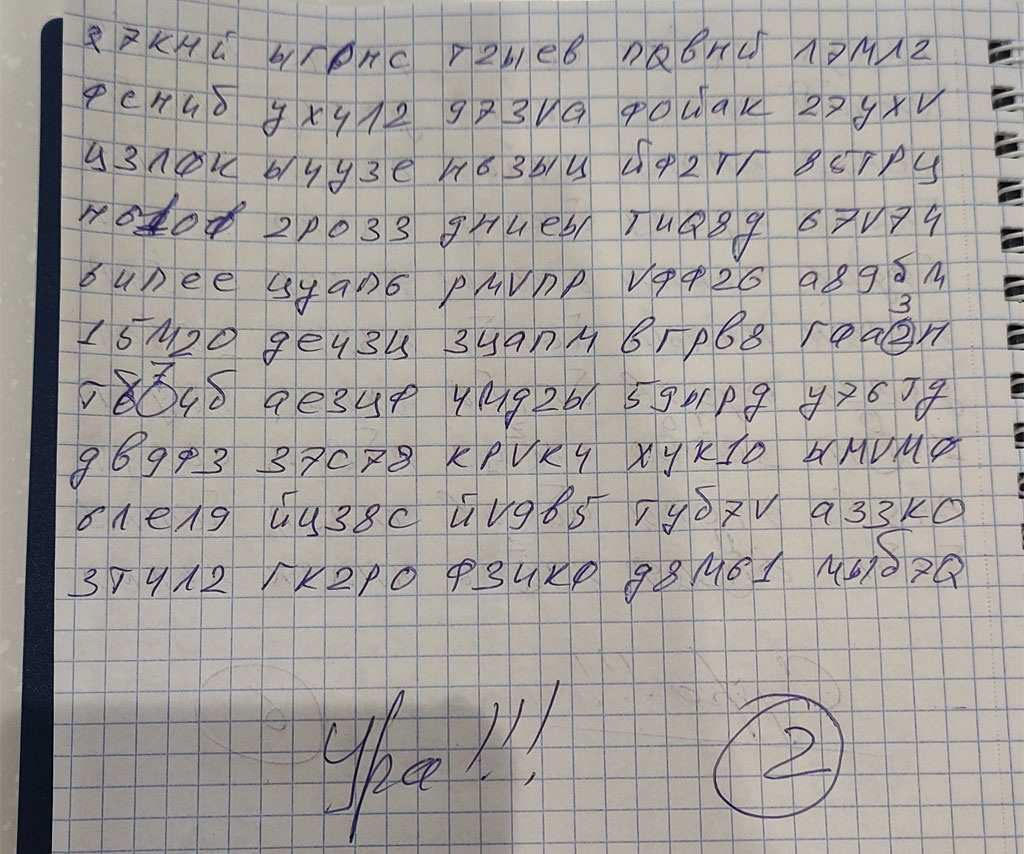 27кнй ыгрнс т2ыев пQвнй 17м12
фсниб ухч12 973Vа фойак 27ухV
цз1фк ычузе нвзыц йф2тг 85трц
2р033 дниеы тиQ8д 67V74
6ипее цуап6 рмVпр Vфф26 а89бм
15м20 деч3ц 3цапм вгрв8 гфа3н
ае3цф чмд2ы 59ырд у76тд
дв9ф3 37с78 крVк4 хук10 ымVмф
61е19 йц38с йV9в5 туб7V а33ко
3т412 гк2ро ф3чкф д8м61 мыб7Q
Ура!!! 2